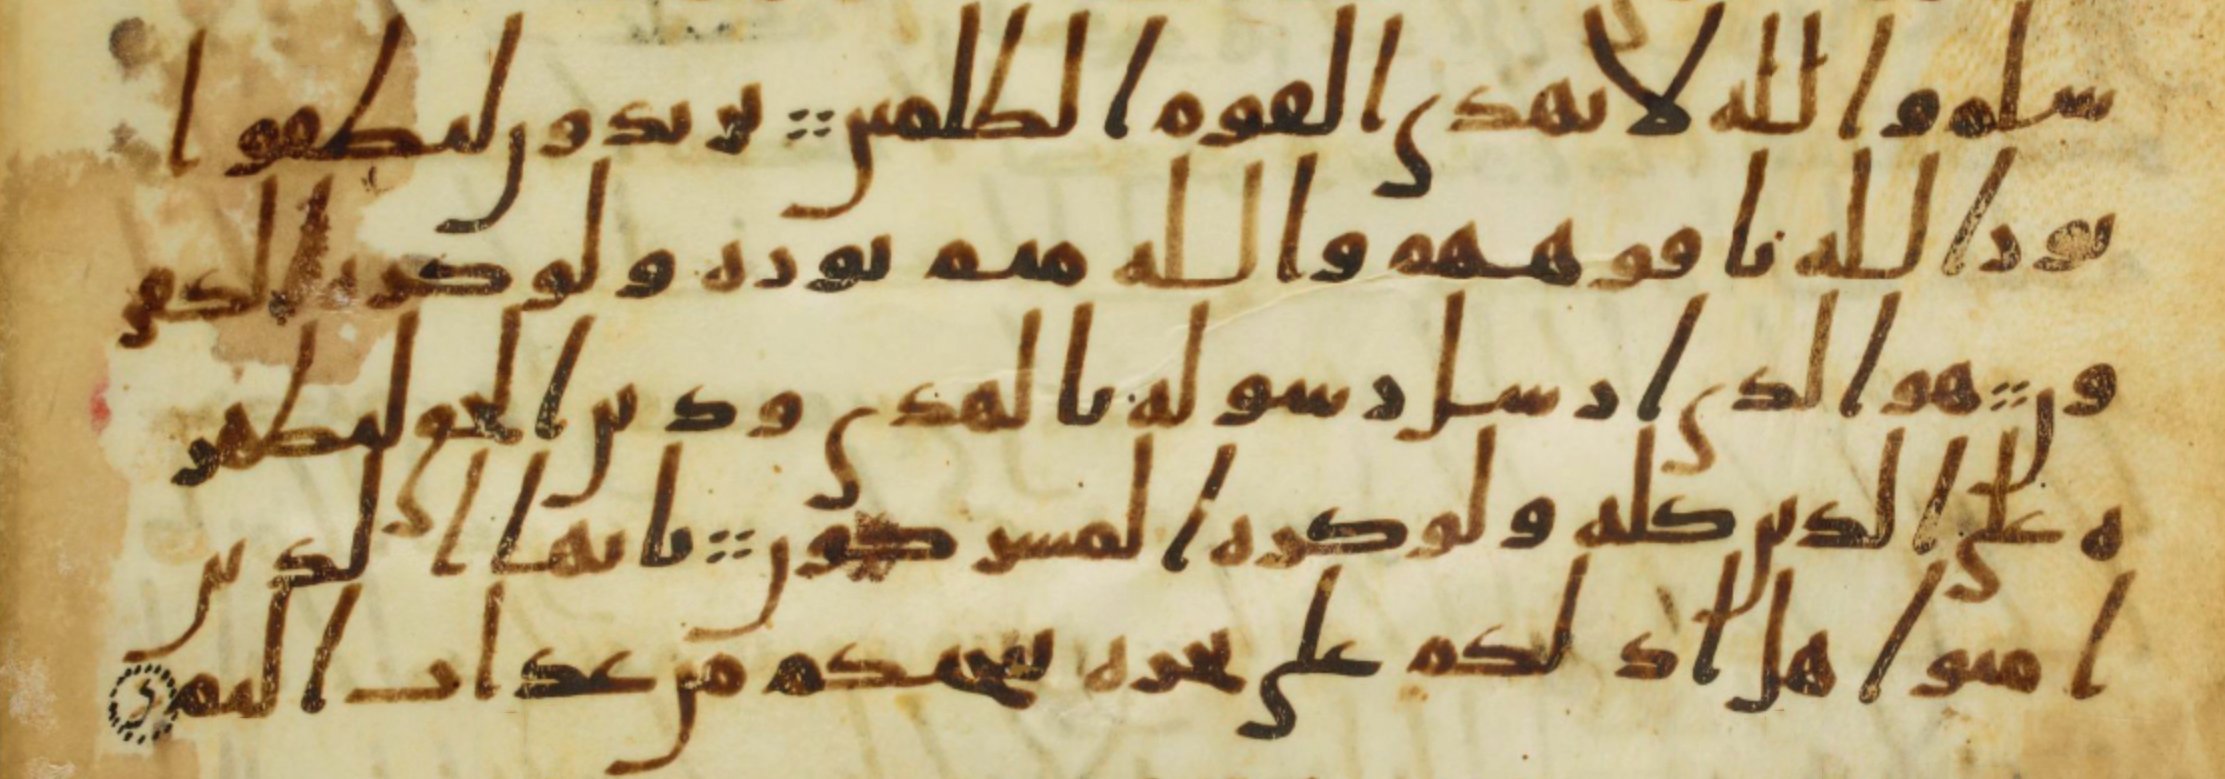 سلم والله لا يهدى القوم الظلمين يريدون ليطفوا
نور الله بافوههم والله متم نوره ولو كره الكفر
ون هو الذى ارسل رسوله بالهدى ودين الحق ليظهر
ه على الدين كله ولو كره المشركون يايها الذين
امنوا هل ادلكم على تجره تنجيكم من عذاب اليم